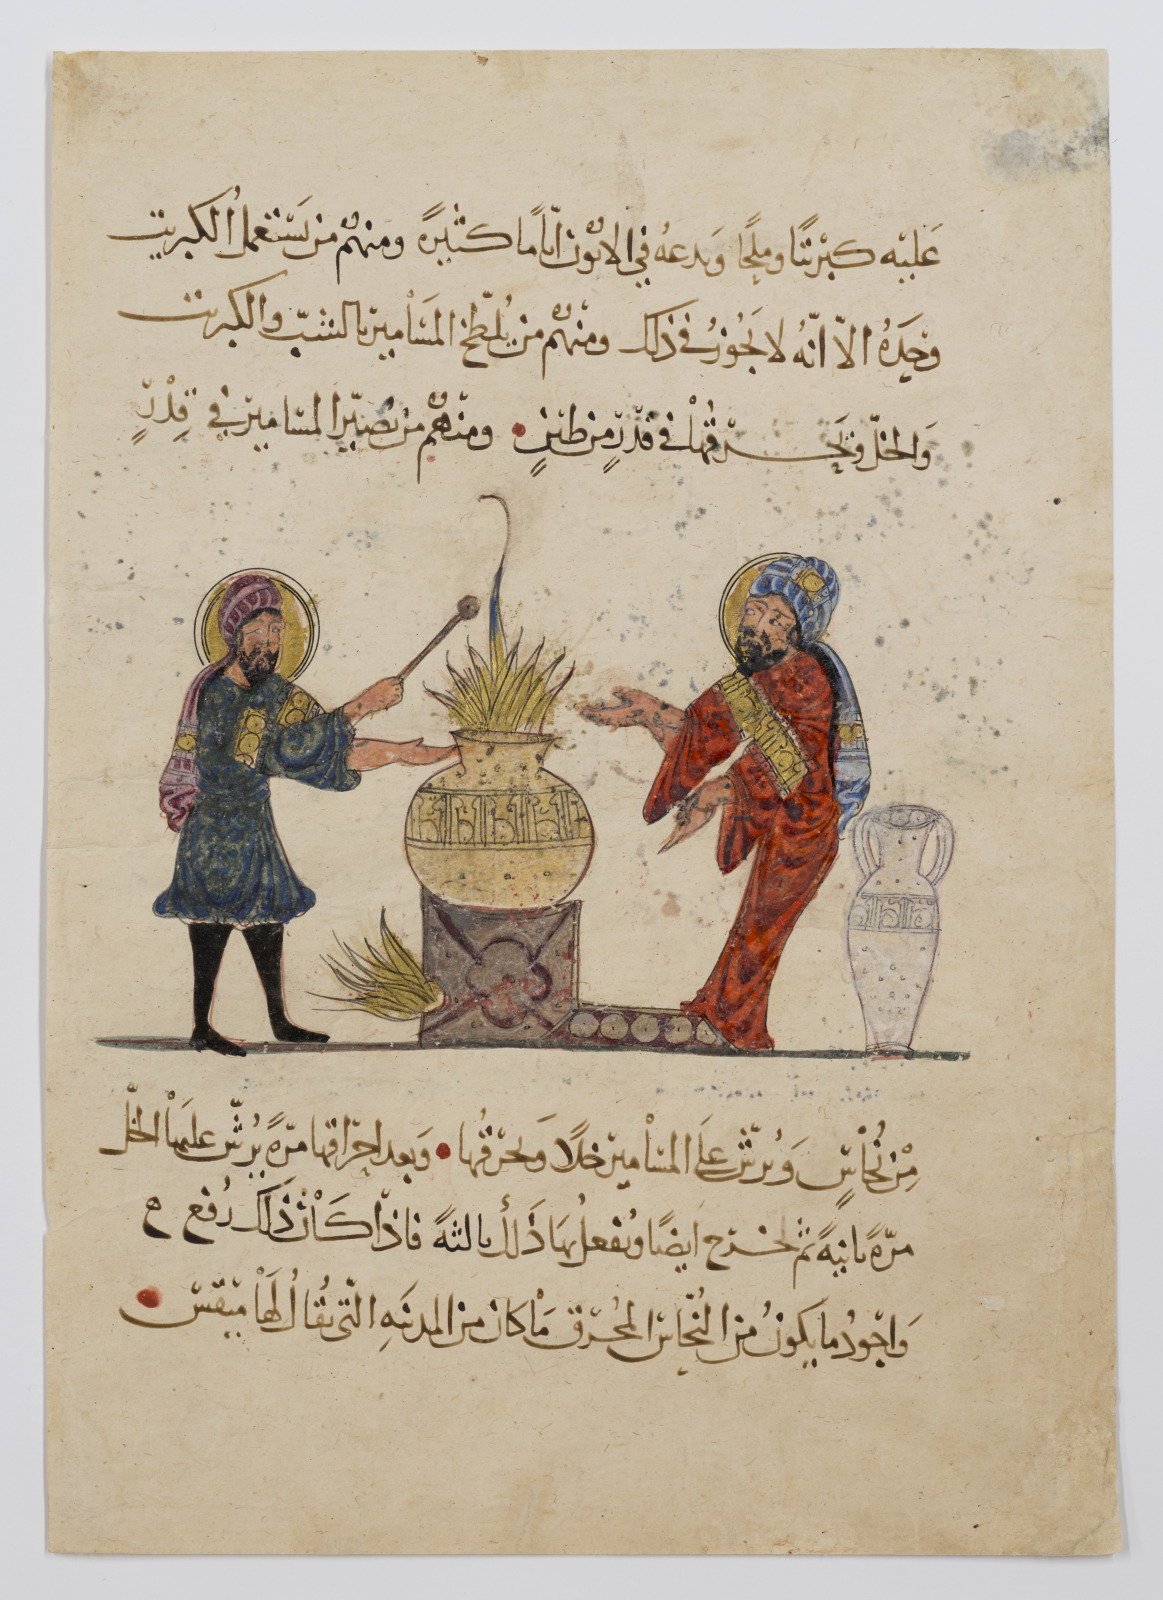 عَلَيْه كبْرِيتًا وملْحًا وَيدعهُ في الاتون ايّامًا كثيرةً ومنهم من يَسْتَعمل الكبريت
وَحْدَهُ الاّ انّهُ لا يَجُوزُ في ذلك ومنهم من يُلطّخ المَسَامير بالشبّ والكبريت
وَالخلّ ويحرقهَا في قدْرٍ من طينٍ ومنهم من يُصيّر المسامير في قِدْرٍ
مِنْ نُحَاسٍ وَيُرشّ عَلَى المسَامير خلًا ويحرقُهَا وَبعد احراقها مرّةً يُرشّ عليهَا الخلّ
مرّةً ثانيةً ثم تخرج ايضًا ويُفعلُ بهَا ذَلك ثالثةً فاذَا كَانَ ذَلكَ رُفع
وَاجْودُ ما يَكونُ من النُحَاس المُحرق مَا كان من المدينَةِ الّتي يُقَالُ لَهَا